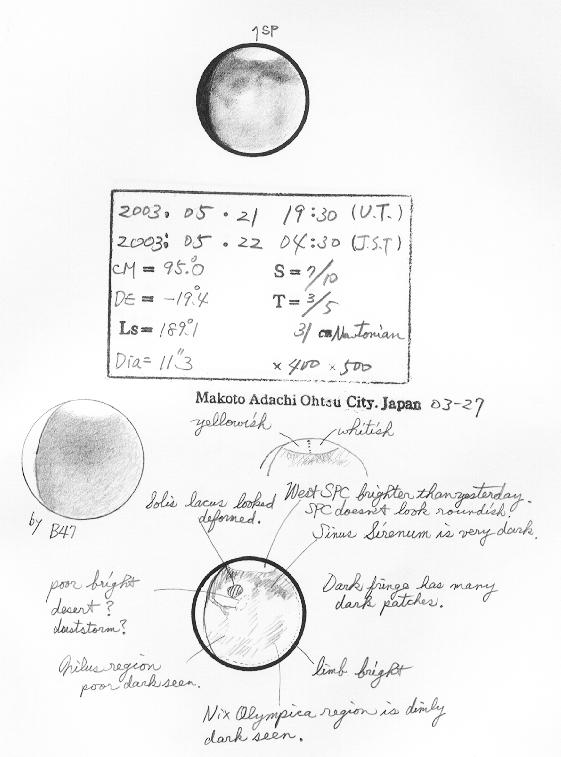 ↑SP
2003. 05 . 21 19:30 (U.T.)
2003. 05 . 22 04:30 (J.S.T)
CM = 95.°0 S = 7/10
DE = -19.°4 T = 3/5
Ls = 189.°1 31 cm Newtonian
Dia = 11."3 × 400 × 500
Makoto Adachi Ohtsu City. Japan 03-27
yellowish whitish
by B47
Solis lacus looked
deformed.
West SPC brighter than yesterday.
SPC doesn't look roundish.
Sinus Sirenum is very dark.
poor bright
desert?
duststorm?
Dark fringe has many
dark patches.
region
poor dark seen.
limb bright
Nix Olympica region is dimly
dark seen.